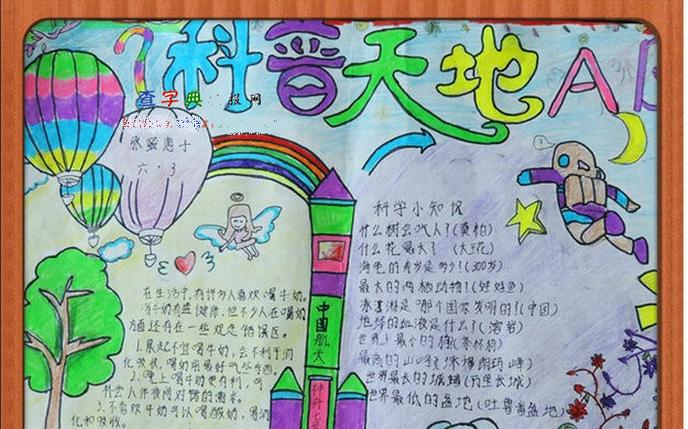 科普天地
查字典 报网
六·3
科学小知识
什么树会吃人?(奠柏)
什么花最大?(大王花)
海龟的寿岁是多少!(300岁)
最大的两栖动物!(娃娃鱼)
冰淇淋是哪个国家发明的!(中国)
地球的血液是什么?(溶岩)
世界上最小的狗(茶杯狗)
最高的山峰珠穆朗玛峰)
世界最长的城墙(万里长城)
世界最低的盆地(吐鲁番盆地)
在生活中,有许多人喜欢喝牛奶。
喝牛奶有益健康,但不少人在喝奶
方面还存在一些观念错误区。
1.晨起不宜喝牛奶,会不利于消
化吸收,喝奶前最好吃些东西。
2.晚上喝牛奶更有利,可
补尝人体夜间对钙的需求。
3.不喜欢牛奶可以喝酸奶,
化和吸收。
中國航天
神舟七